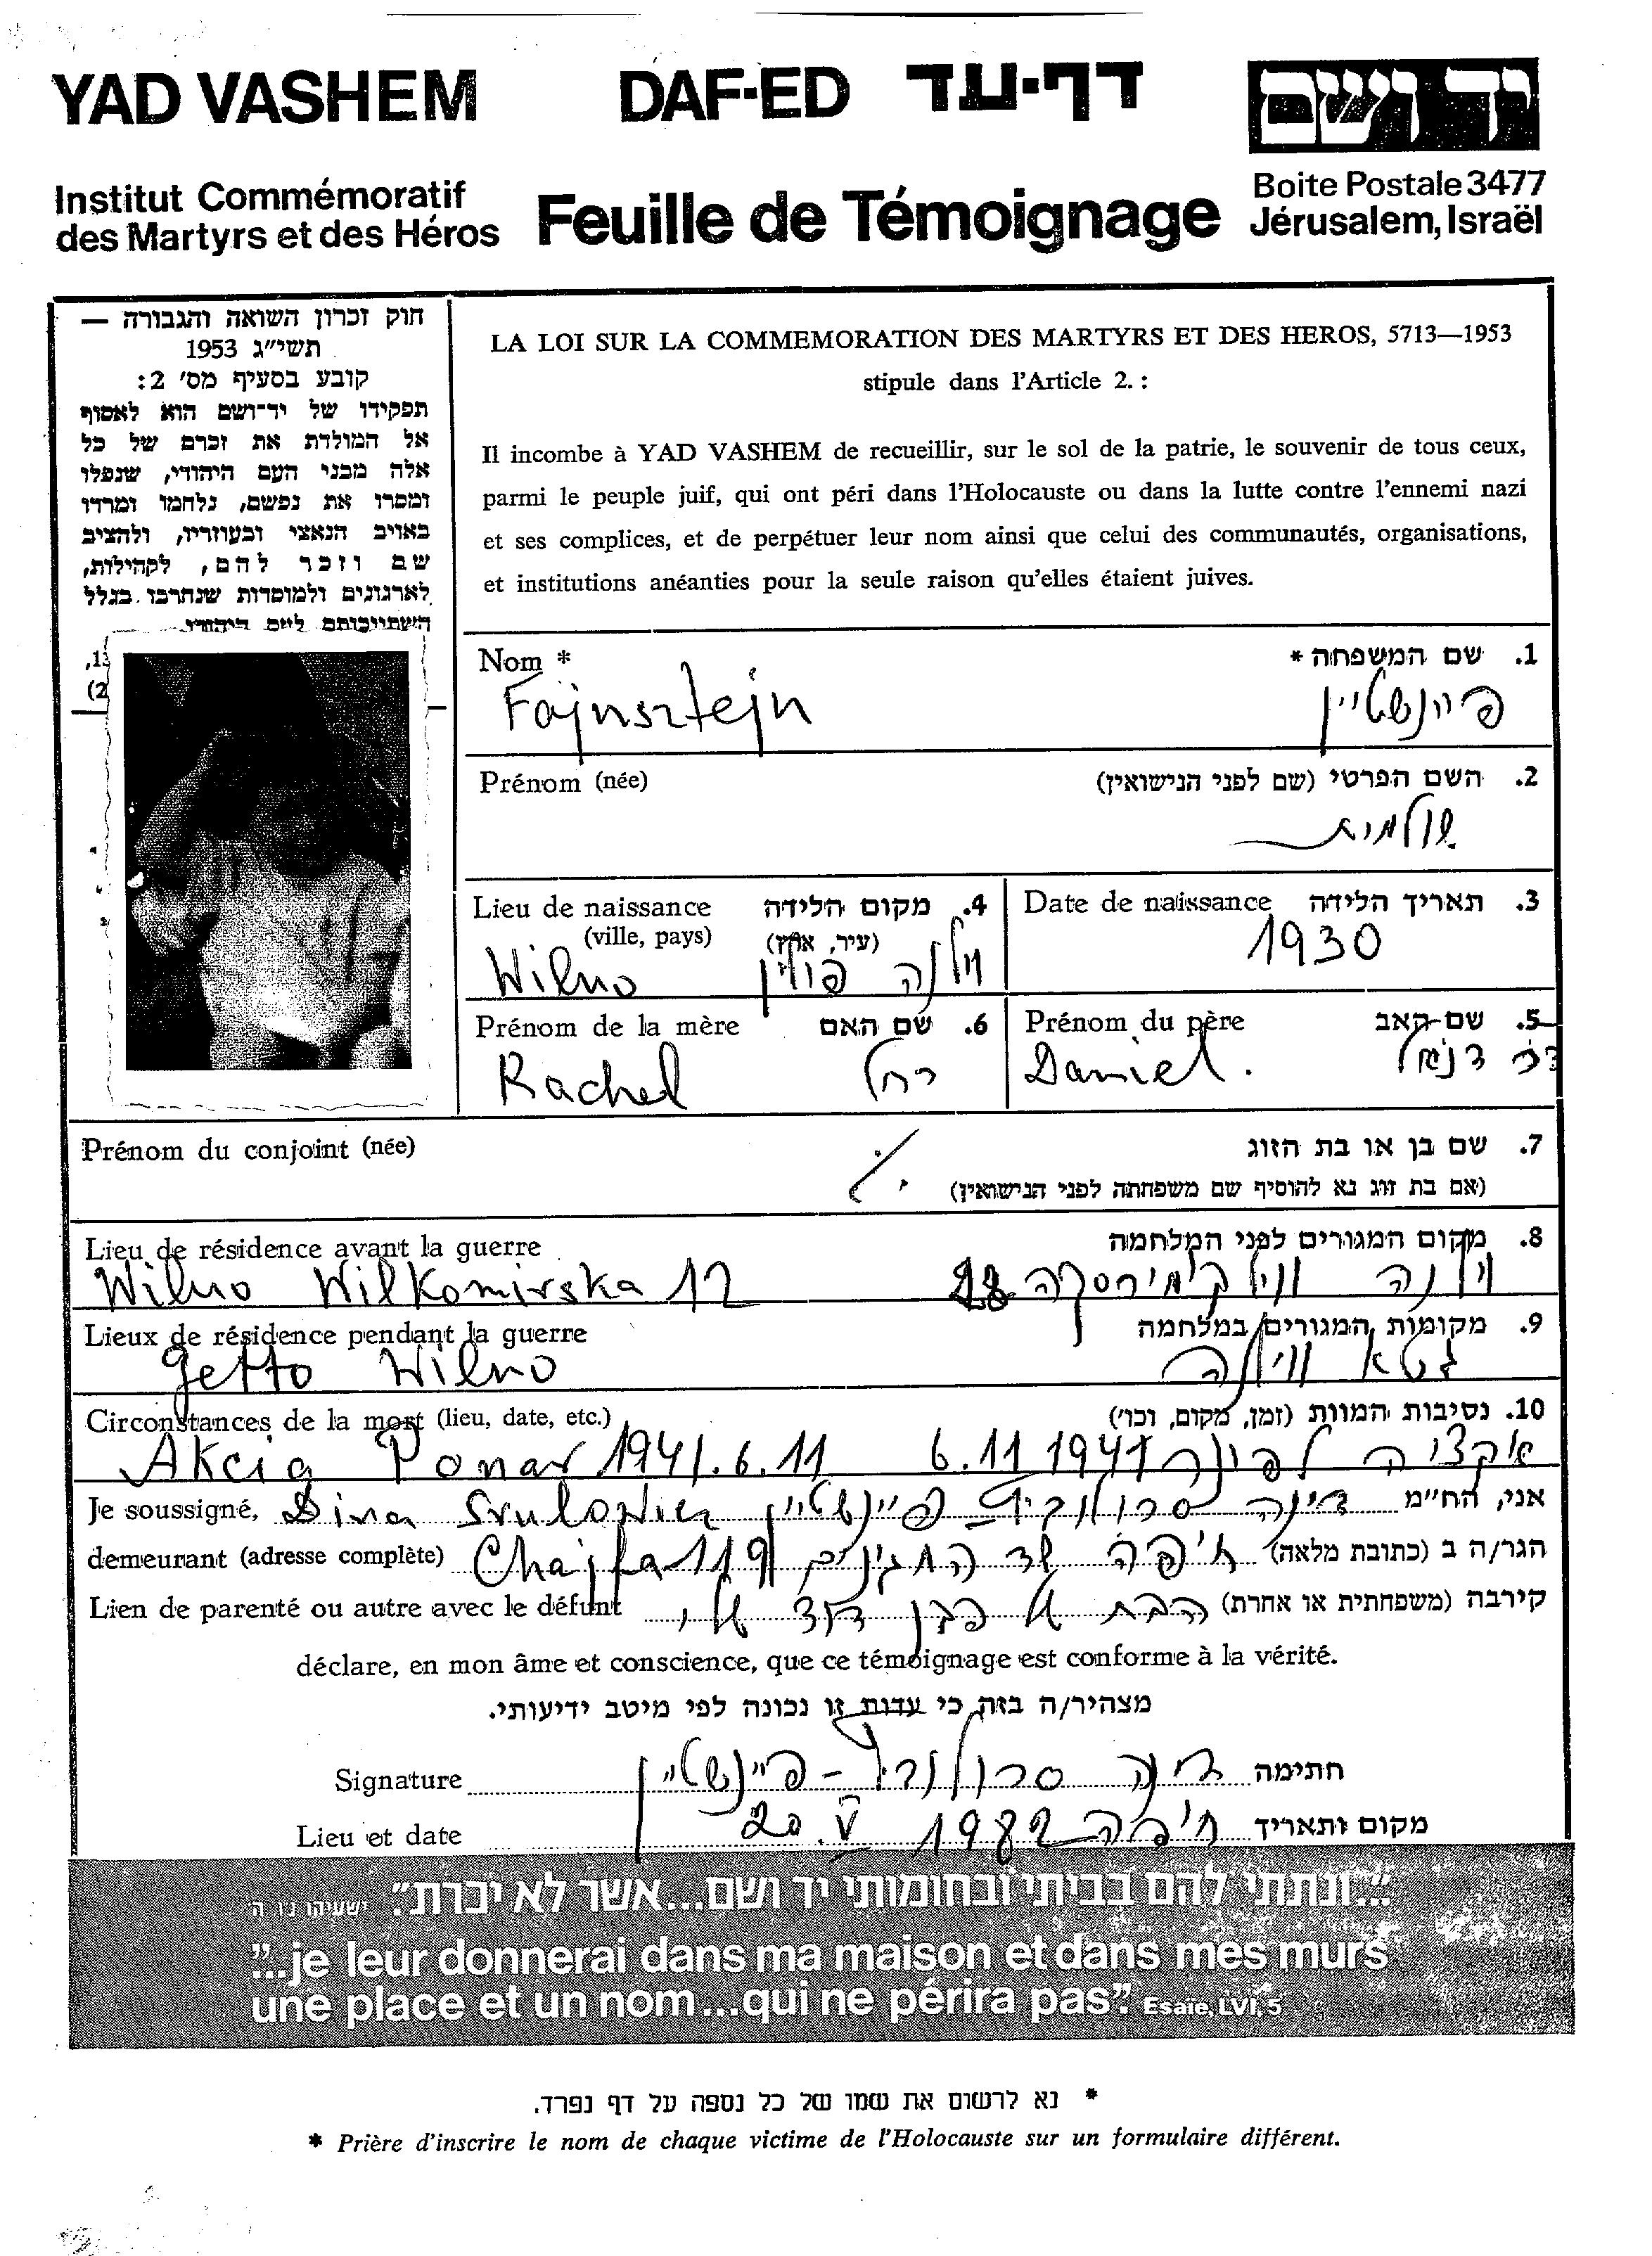 YAD VASHEM DAF-ED דף-עד יד ושם
Institut Commémoratif
des Martyrs et des Héros
Feuille de Témoignage
Boite Postale 3477
Jérusalem, Israël
חוק זכרון השואה והגבורה —
תשי״ג 1953
קובע בסעיף מס׳ 2:
תפקידו של יד־ושם הוא לאסוף
אל המולדת את זכרם של כל
אלה מבני העם היהודי, שנפלו
ומסרו את נפשם, נלחמו ומרדו
באויב הנאצי ובעוזריו, ולהציב
שם וזכר להם, לקהילות,
לארגונים ולמוסדות שנחרבו בגלל
השתייכותם לעם היהודי
LA LOI SUR LA COMMEMORATION DES MARTYRS ET DES HEROS, 5713—1953
stipule dans l'Article 2. :
Il incombe à YAD VASHEM de recueillir, sur le sol de la patrie, le souvenir de tous ceux,
parmi le peuple juif, qui ont péri dans l'Holocauste ou dans la lutte contre l'ennemi nazi
et ses complices, et de perpétuer leur nom ainsi que celui des communautés, organisations,
et institutions anéanties pour la seule raison qu'elles étaient juives.
Nom * 1. שם המשפחה *
Fajnsztejn פיינשטיין
Prénom (née) 2. השם הפרטי (שם לפני הנישואין)
שולמית
Lieu de naissance 4. מקום הלידה
(ville, pays) (עיר, ארץ)
Wilno וילנה פולין
Date de naissance 3. תאריך הלידה
1930
Prénom de la mère 6. שם האם
Rachel רחל
Prénom du père 5. שם האב
Daniel. דניאל
Prénom du conjoint (née) 7. שם בן או בת הזוג
(אם בת זוג נא להוסיף שם משפחתה לפני הנישואין)
Lieu de résidence avant la guerre 8. מקום המגורים לפני המלחמה
Wilno Wilkomirska 12 וילנה ווילקומירסקה
Lieux de résidence pendant la guerre 9. מקומות המגורים במלחמה
Getto Wilno גטא ווילנה
Circonstances de la mort (lieu, date, etc.) 10. נסיבות המוות (זמן, מקום, וכו׳)
Akcia Ponar 1941.6.11 אקציה לפונר 6.11 1941
Je soussigné, Dina Srulowicz אני, הח״מ דינה סרולוביץ פיינשטיין
demeurant (adresse complète) Chajfa 119 הגר/ה ב (כתובת מלאה) חיפה שד
Lien de parenté ou autre avec le défunt קירבה (משפחתית או אחרת) הבת של בן דוד שלי
déclare, en mon âme et conscience, que ce témoignage est conforme à la vérité.
מצהיר/ה בזה כי עדות זו נכונה לפי מיטב ידיעותי.
Signature חתימה דינה סרולוביץ - פיינשטיין
Lieu et date מקום ותאריך חיפה 20.V 1982
"...ונתתי להם בביתי ובחומותי יד ושם...אשר לא יכרת." ישעיהו נו ה׳
"...je leur donnerai dans ma maison et dans mes murs
une place et un nom...qui ne périra pas". Esaïe, LVI, 5
* נא לרשום את שמו של כל נספה על דף נפרד.
* Prière d'inscrire le nom de chaque victime de l'Holocauste sur un formulaire différent.